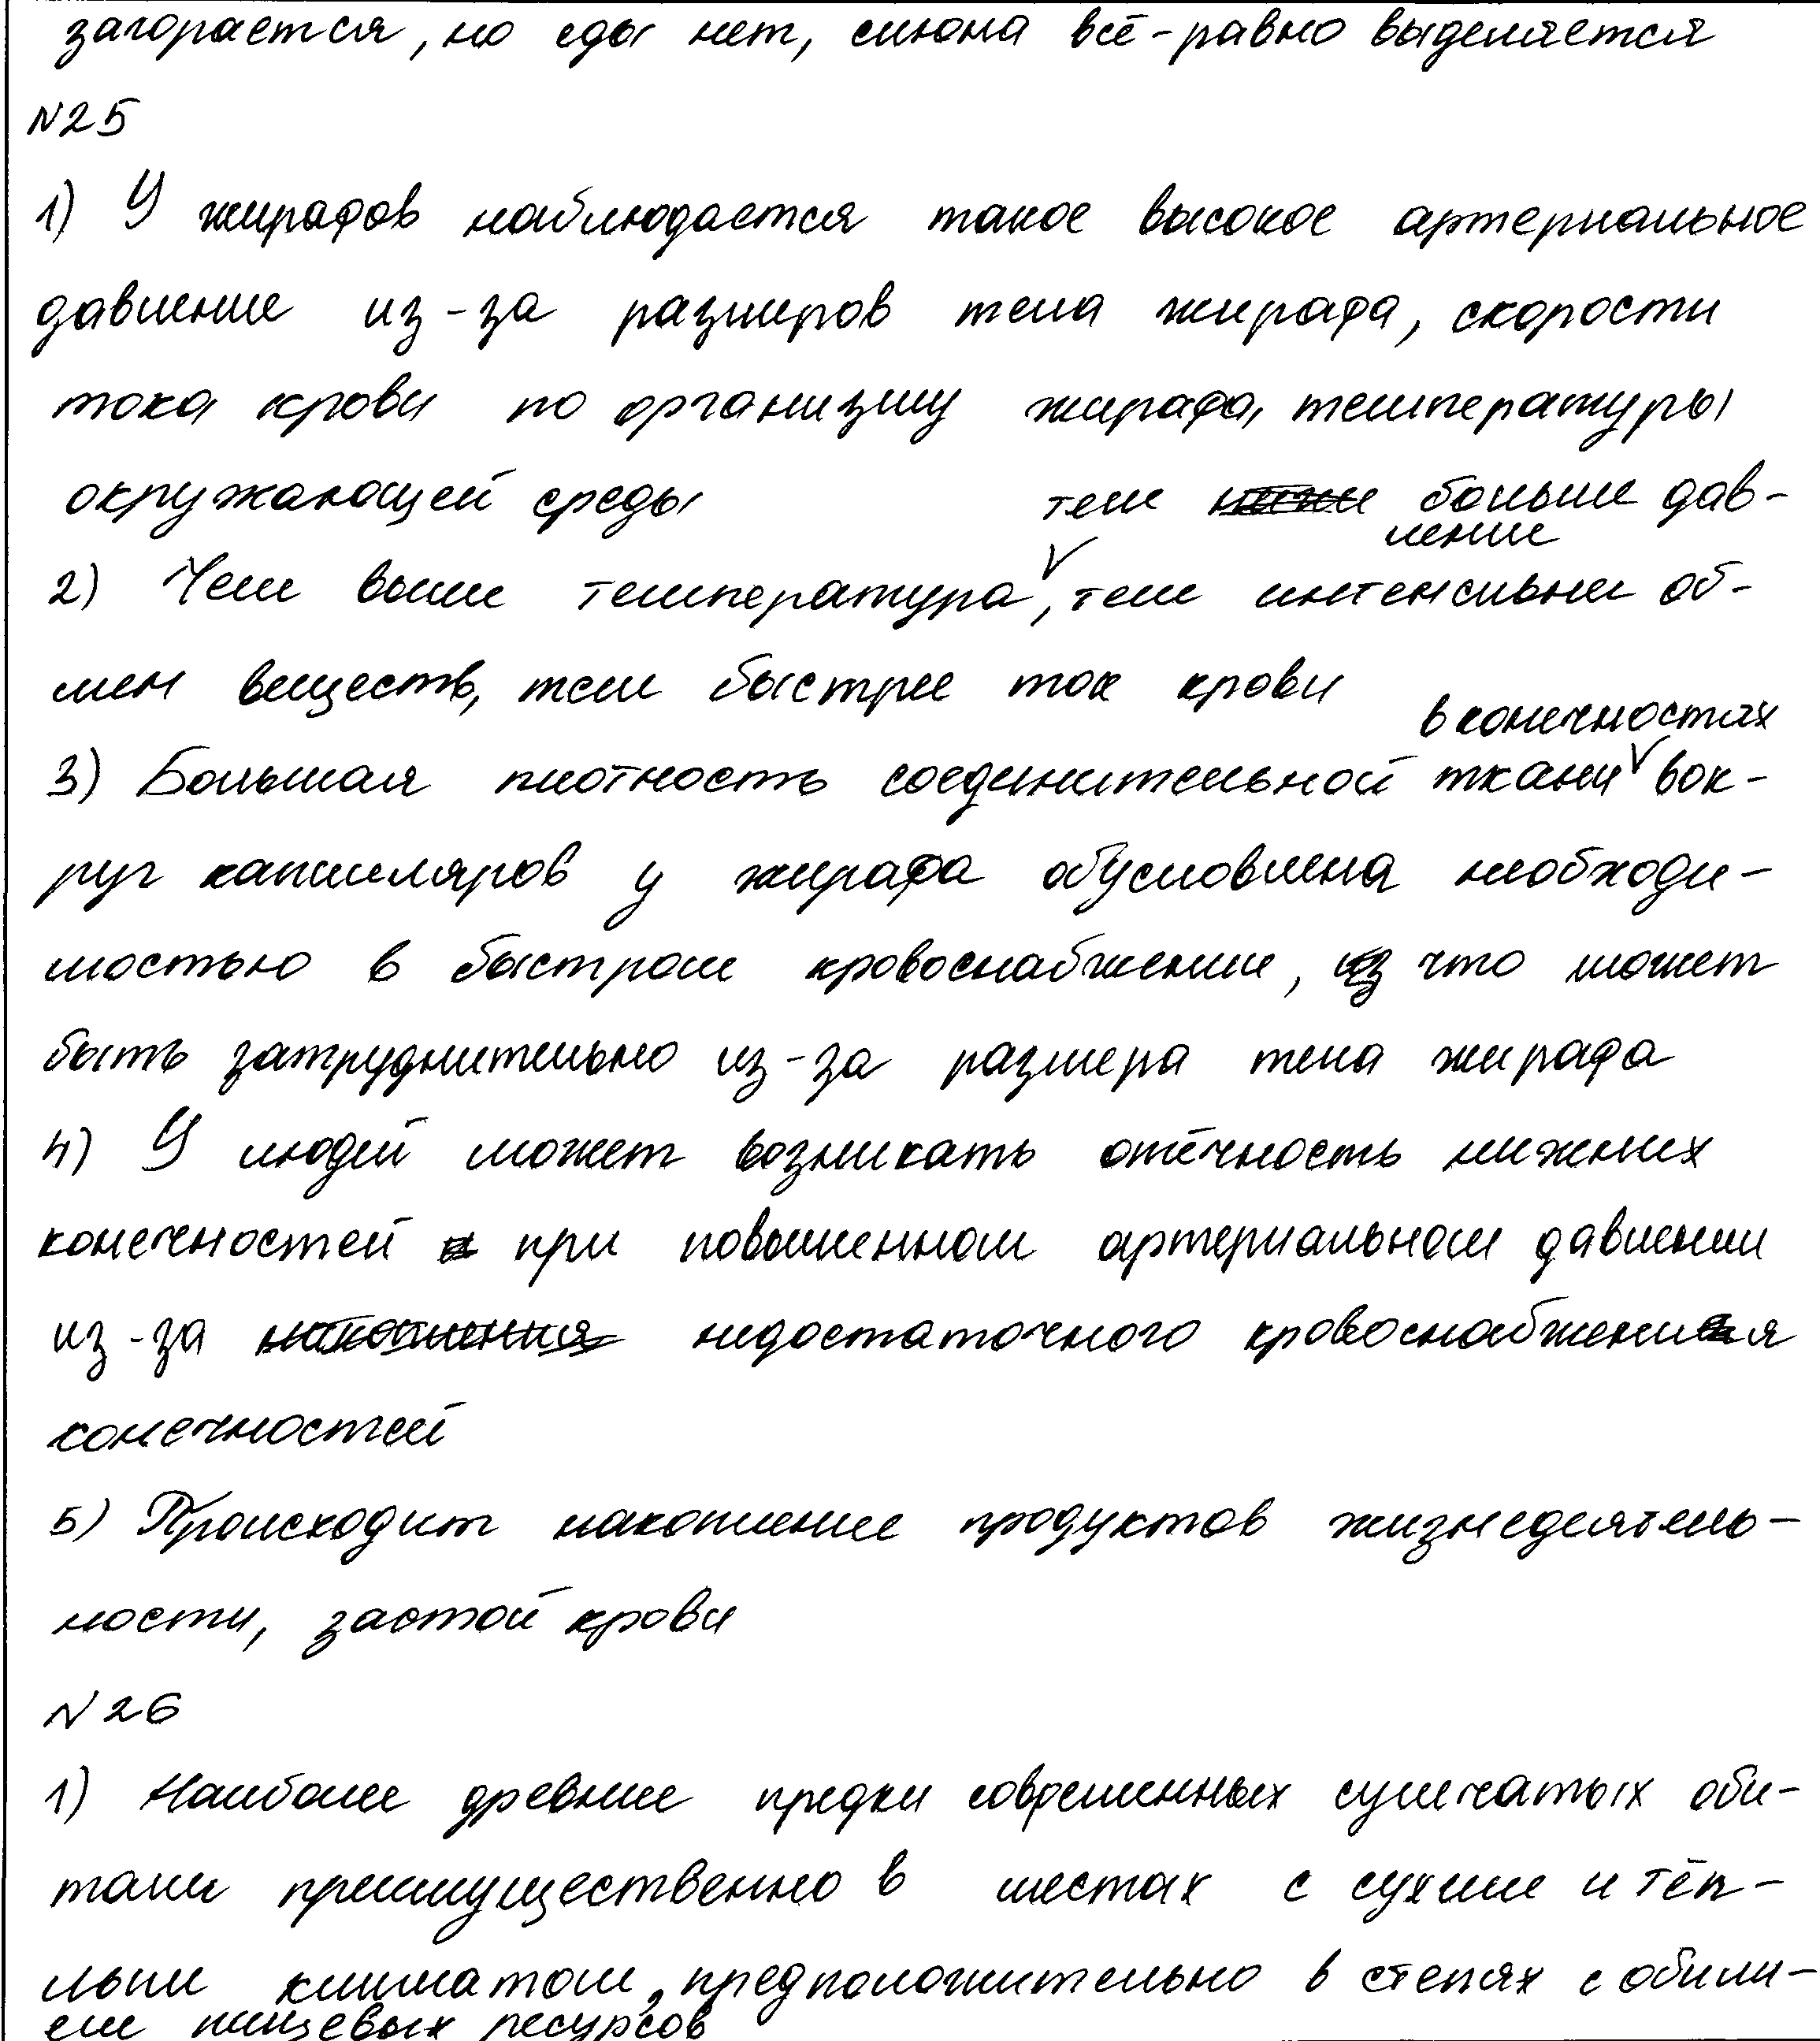 загорается, но еды нет, слюна всё-равно выделяется
№25
1) У жирафов наблюдается такое высокое артериальное
давление из-за размеров тела жирафа, скорости
тока крови по организму жирафа, температуры
окружающей среды
тем ниже больше дав-
ление
2) Чем выше температура, тем интенсивнее об-
мен веществ, тем быстрее ток крови
в конечностях
3) Большая плотность соединительной ткани вок-
руг капилляров у жирафа обусловлена необходи-
мостью в быстром кровоснабжении, что может
быть затруднительно из-за размера тела жирафа
4) У людей может возникать отёчность нижних
конечностей при повышенном артериальном давлении
из-за накопления недостаточного кровоснабжения
конечностей
5) Происходит накопление продуктов жизнедеятель-
ности, застой крови
№26
1) Наиболее древние предки современных сумчатых оби-
тали преимущественно в местах с сухим и тёп-
лым климатом, предположительно в степях с обили-
ем пищевых ресурсов